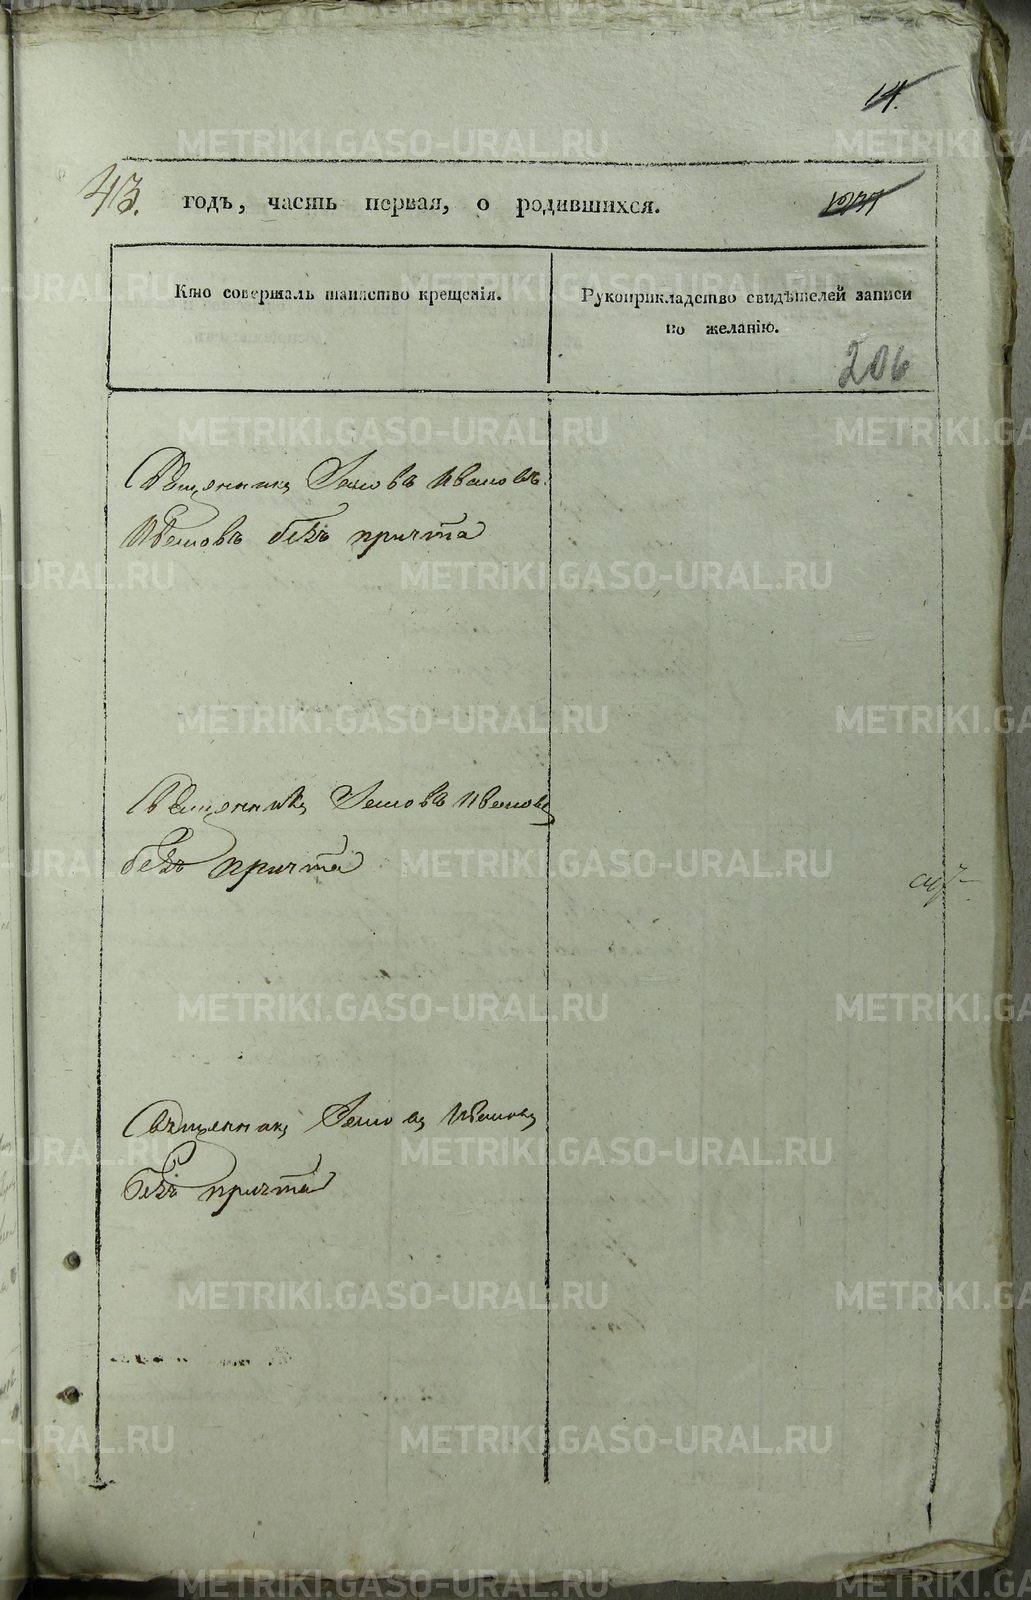 14.
43. годъ, часть первая, о родившихся.
Кто совершалъ таинство крещенія.
Рукоприкладство свидѣтелей записи
по желанію.
206
Священникъ Іаковъ Ивановъ
Ивановъ безъ причта
Священникъ Іаковъ Ивановъ
безъ причта
Священникъ Іаковъ Ивановъ
безъ причта
METRIKI.GASO-URAL.RU